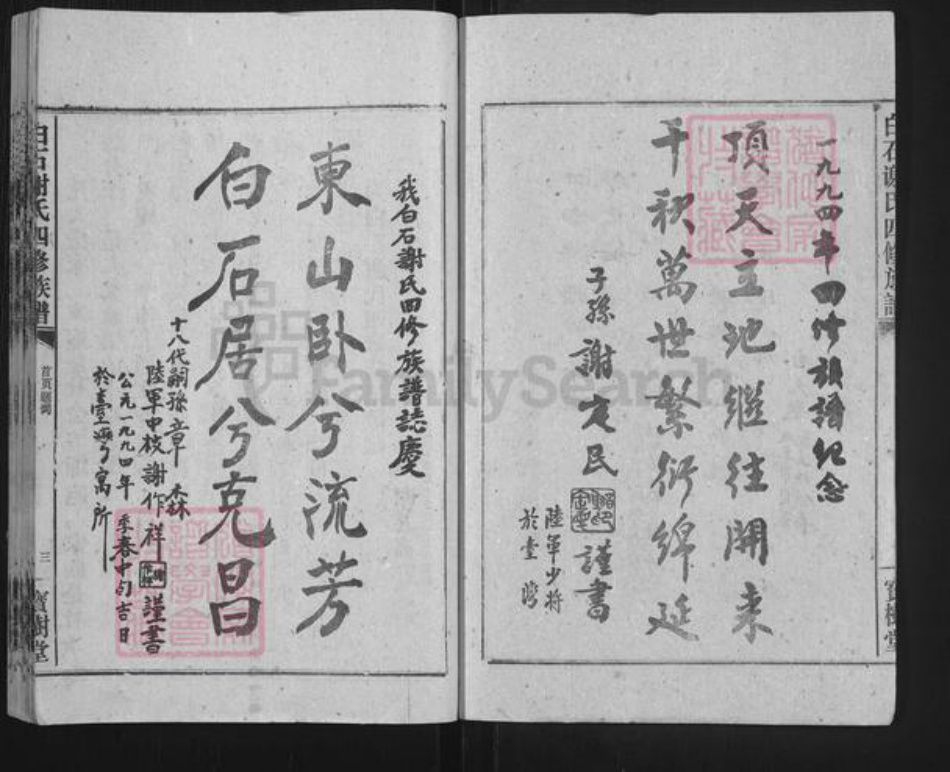 一九九四年四修族譜紀念
頂天立地繼往開來
千秋萬世繁衍綿延
子孫謝定民
謹書
陸軍少將
於臺灣
白石謝氏四修族譜
寶樹堂
我白石謝氏四修族譜誌慶
東山卧兮流芳
白石居兮克昌
十八代嗣孫章森
陸軍中校謝作祥
謹書
公元一九九四年季春中旬吉日
於臺灣寓所
白石謝氏四修族譜
首頁題詞
三
寶樹堂
FamilySearch